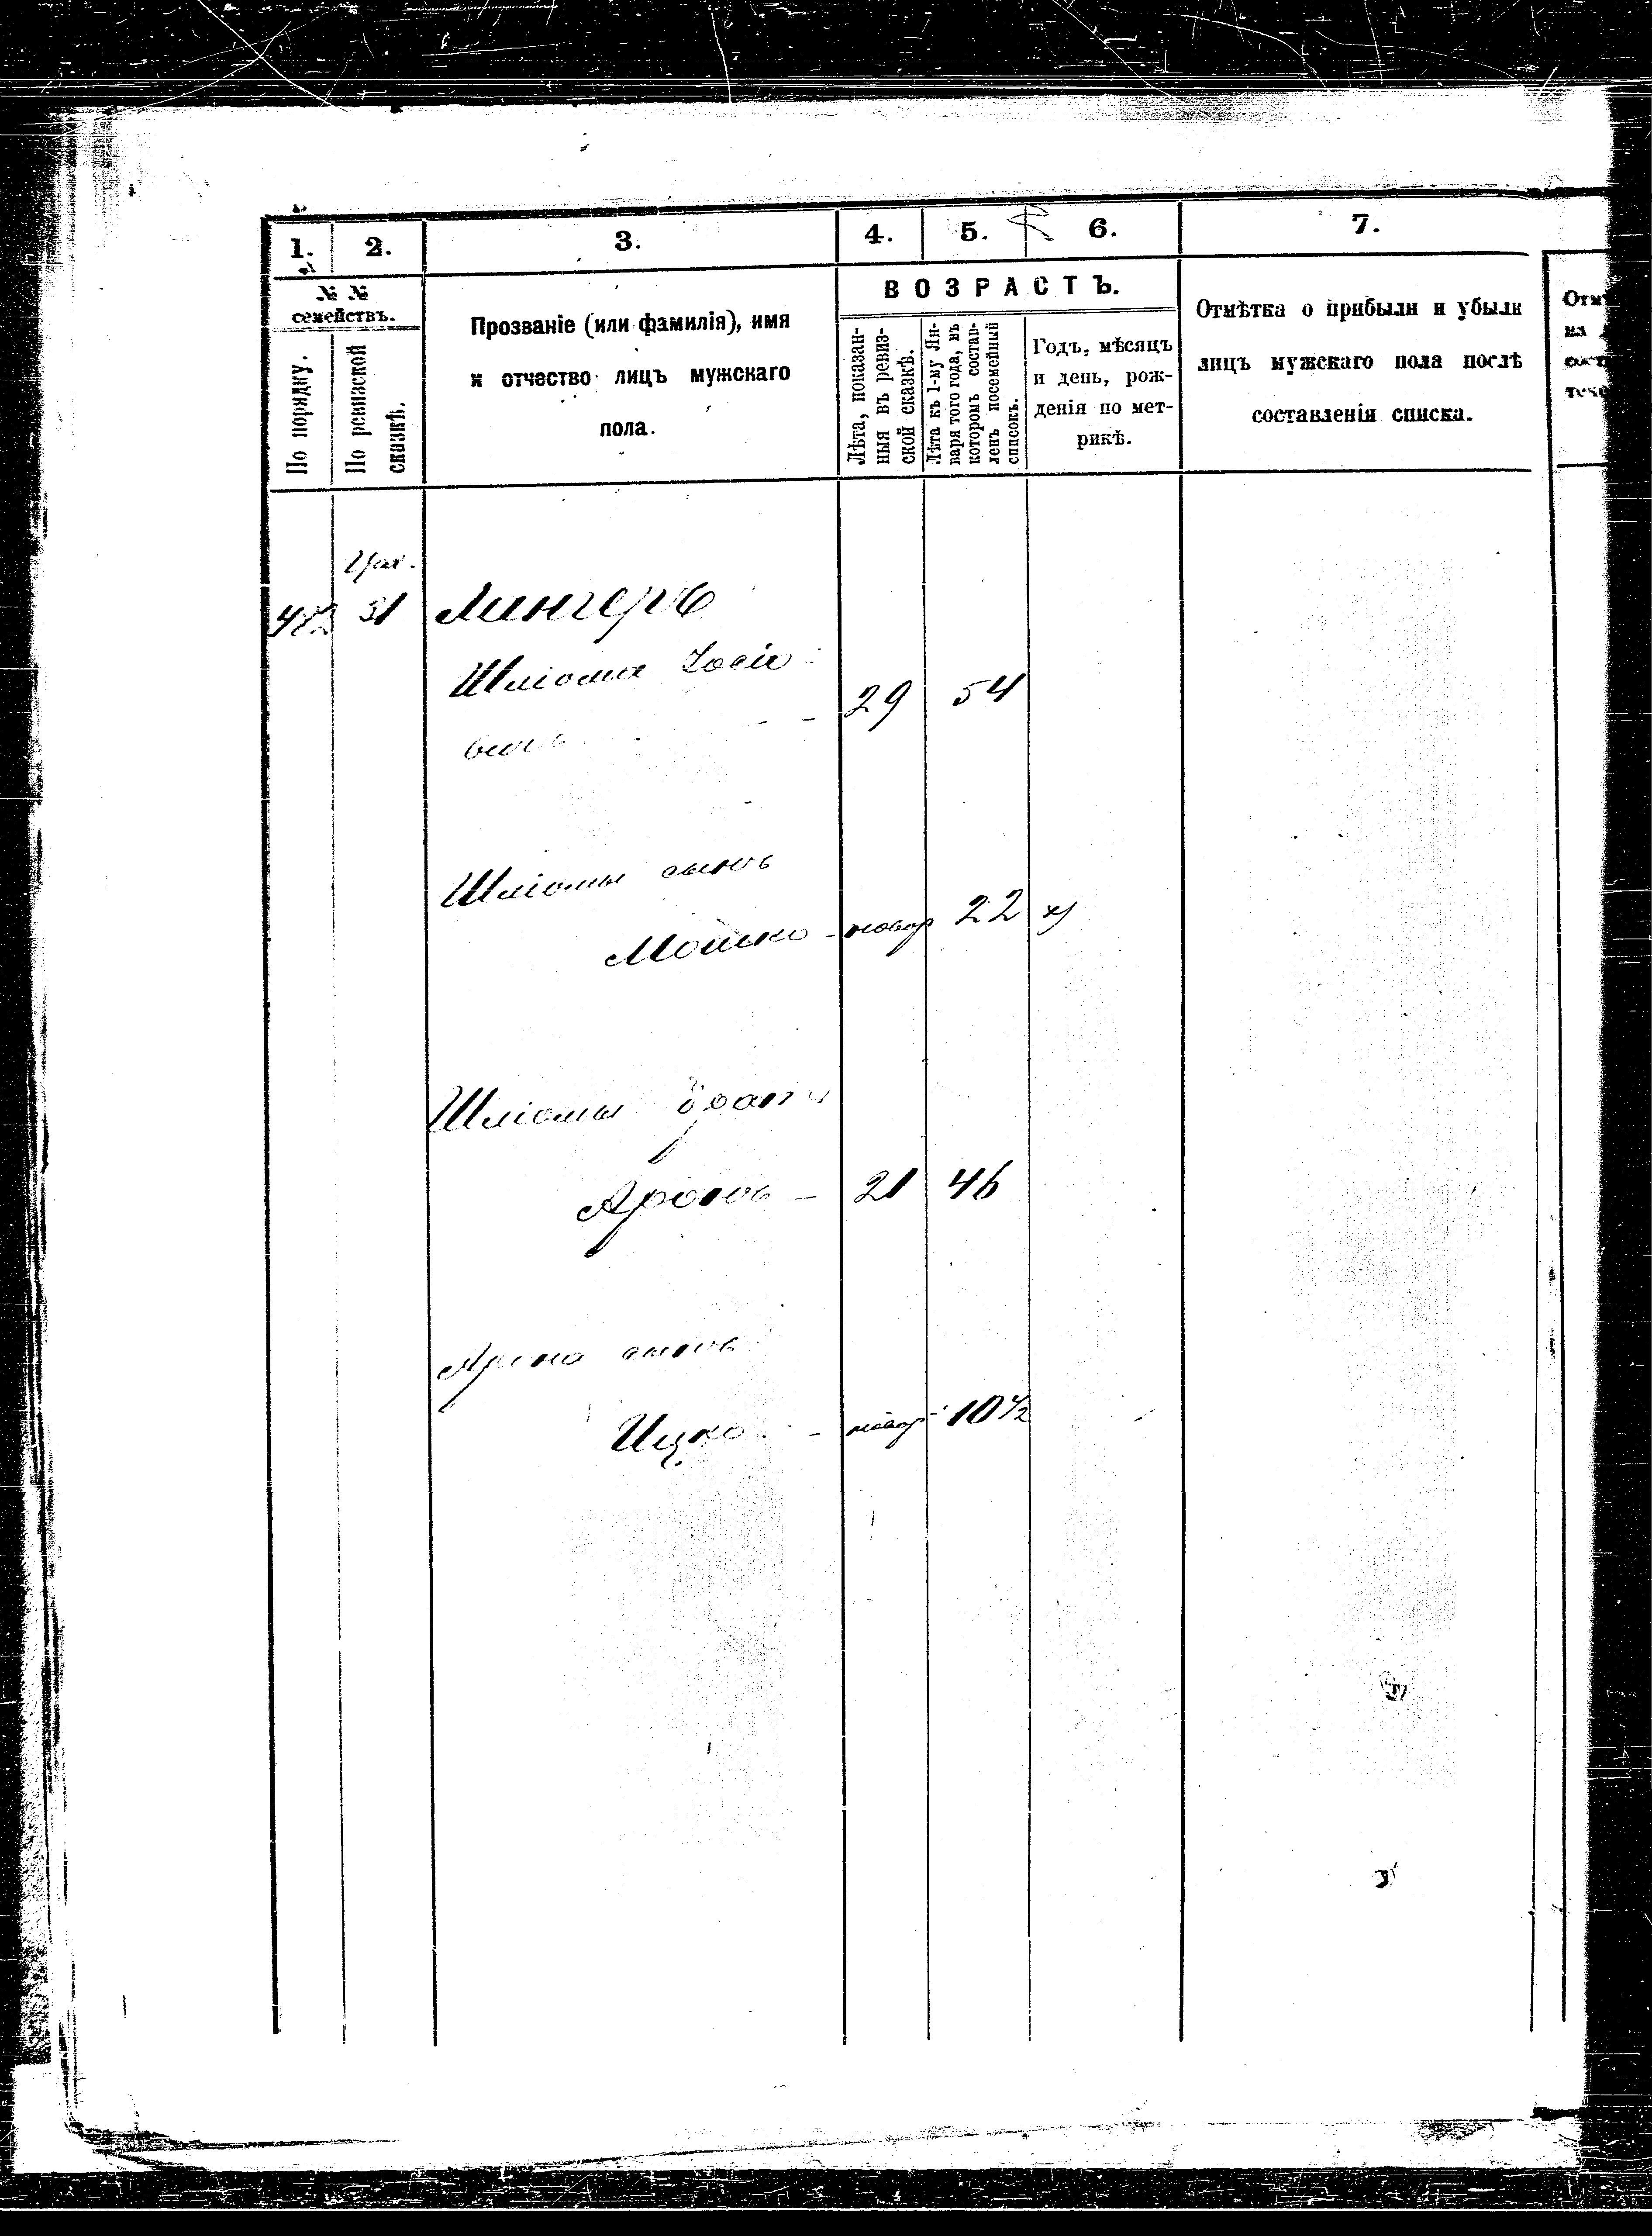 1. 2. 3. 4. 5. 6. 7.
№ №
семействъ.
По порядку.
По ревизской
сказкѣ.
Прозваніе (или фамилія), имя
и отчество лицъ мужскаго
пола.
ВОЗРАСТЪ.
Лѣта, показан-
ныя въ ревиз-
ской сказкѣ.
Лѣта къ 1-му Ян-
варя того года, въ
которомъ состав-
ленъ посемейный
списокъ.
Годъ, мѣсяцъ
и день, рож-
денія по мет-
рикѣ.
Отмѣтка о прибыли и убыли
лицъ мужскаго пола послѣ
составленія списка.
31 Лингеръ
Шліома Іосіо-
вичъ - - 29 54
Шліомы сынъ
Мошко - новор 22
Шліомы братъ
Аронъ - 21 46
Арона сынъ
Ицко - новор 10 1/2